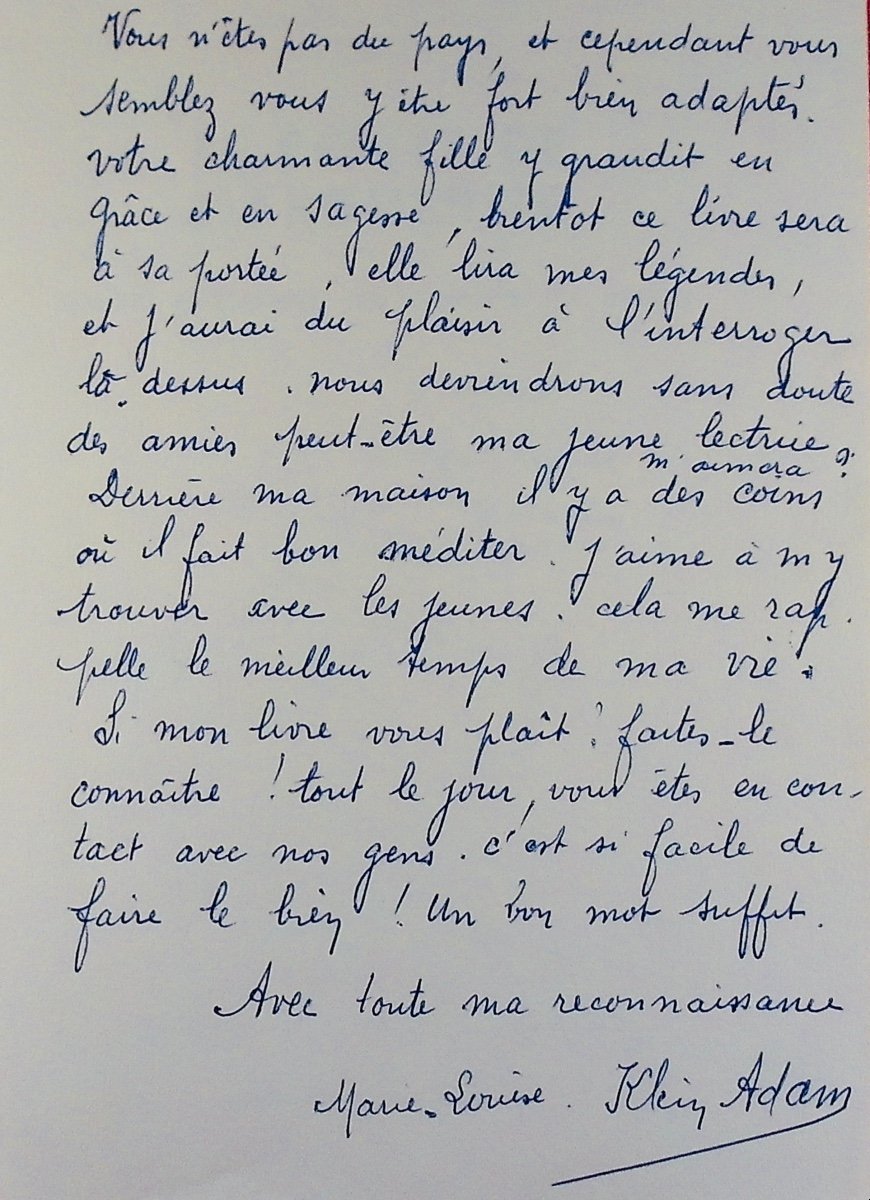 Vous n'êtes pas du pays, et cependant vous
semblez vous y être fort bien adaptés.
votre charmante fille y grandit en
grâce et en sagesse, bientôt ce livre sera
à sa portée, elle lira mes légendes,
et j'aurai du plaisir à l'interroger
là-dessus. nous deviendrons sans doute
des amies peut-être ma jeune lectrice
m'aimera ?
Derrière ma maison il y a des coins
où il fait bon méditer. J'aime à m'y
trouver avec les jeunes. cela me rap-
pelle le meilleur temps de ma vie.
Si mon livre vous plaît ? faites-le
connaître ! tout le jour, vous êtes en con-
tact avec nos gens. c'est si facile de
faire le bien ! Un bon mot suffit.
Avec toute ma reconnaissance
Marie-Louise. Klein Adam